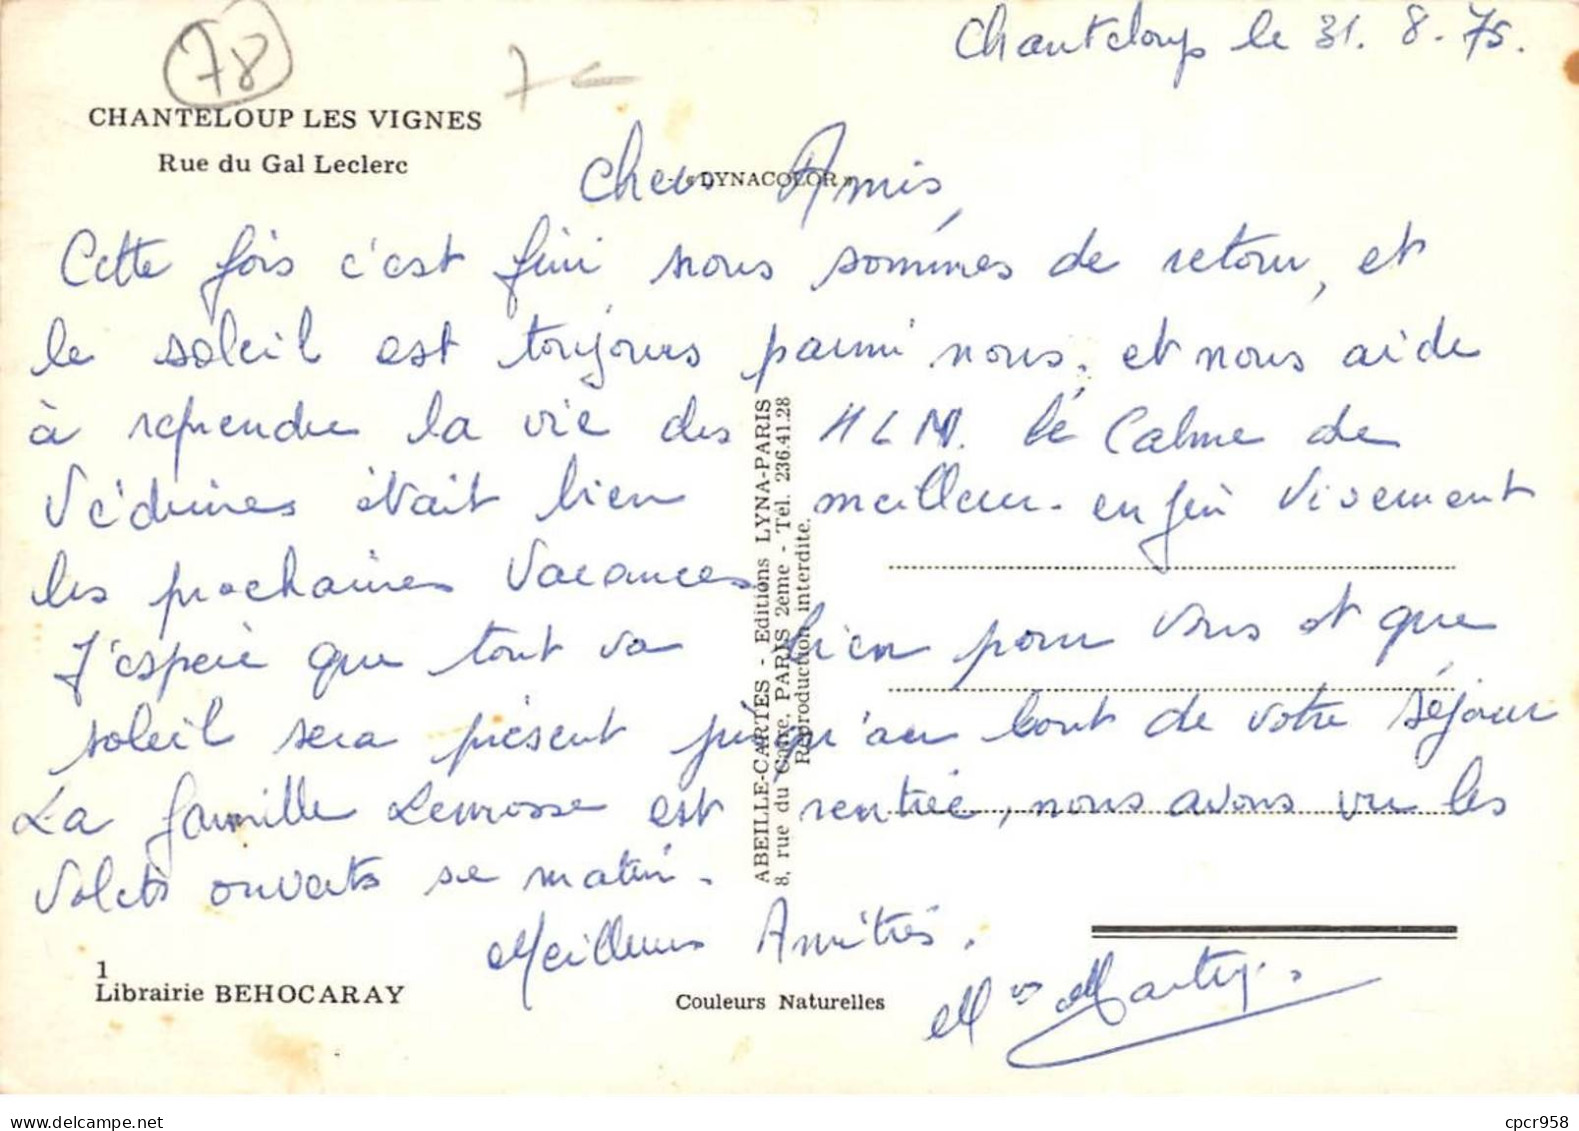 Chanteloup le 31.8.75.
78
CHANTELOUP LES VIGNES
Rue du Gal Leclerc
« DYNACOLOR »
Chers Amis,
Cette fois c'est fini nous sommes de retour, et
le soleil est toujours parmi nous. et nous aide
à reprendre la vie des HLM. le Calme de
Védrines était bien meilleur. enfin vivement
les prochaines Vacances
J'espère que tout va bien pour vous et que
soleil sera présent jusqu'au bout de votre séjour
La famille est rentrée, nous avons vu les
volets ouverts se matin.
Meilleurs Amitiés.
Martin
ABEILLE-CARTES - Editions LYNA-PARIS
8, rue du Caire, PARIS 2ème - Tél. 236.41.28
Reproduction interdite.
1
Librairie BEHOCARAY
Couleurs Naturelles
cpcr958
www.delcampe.net